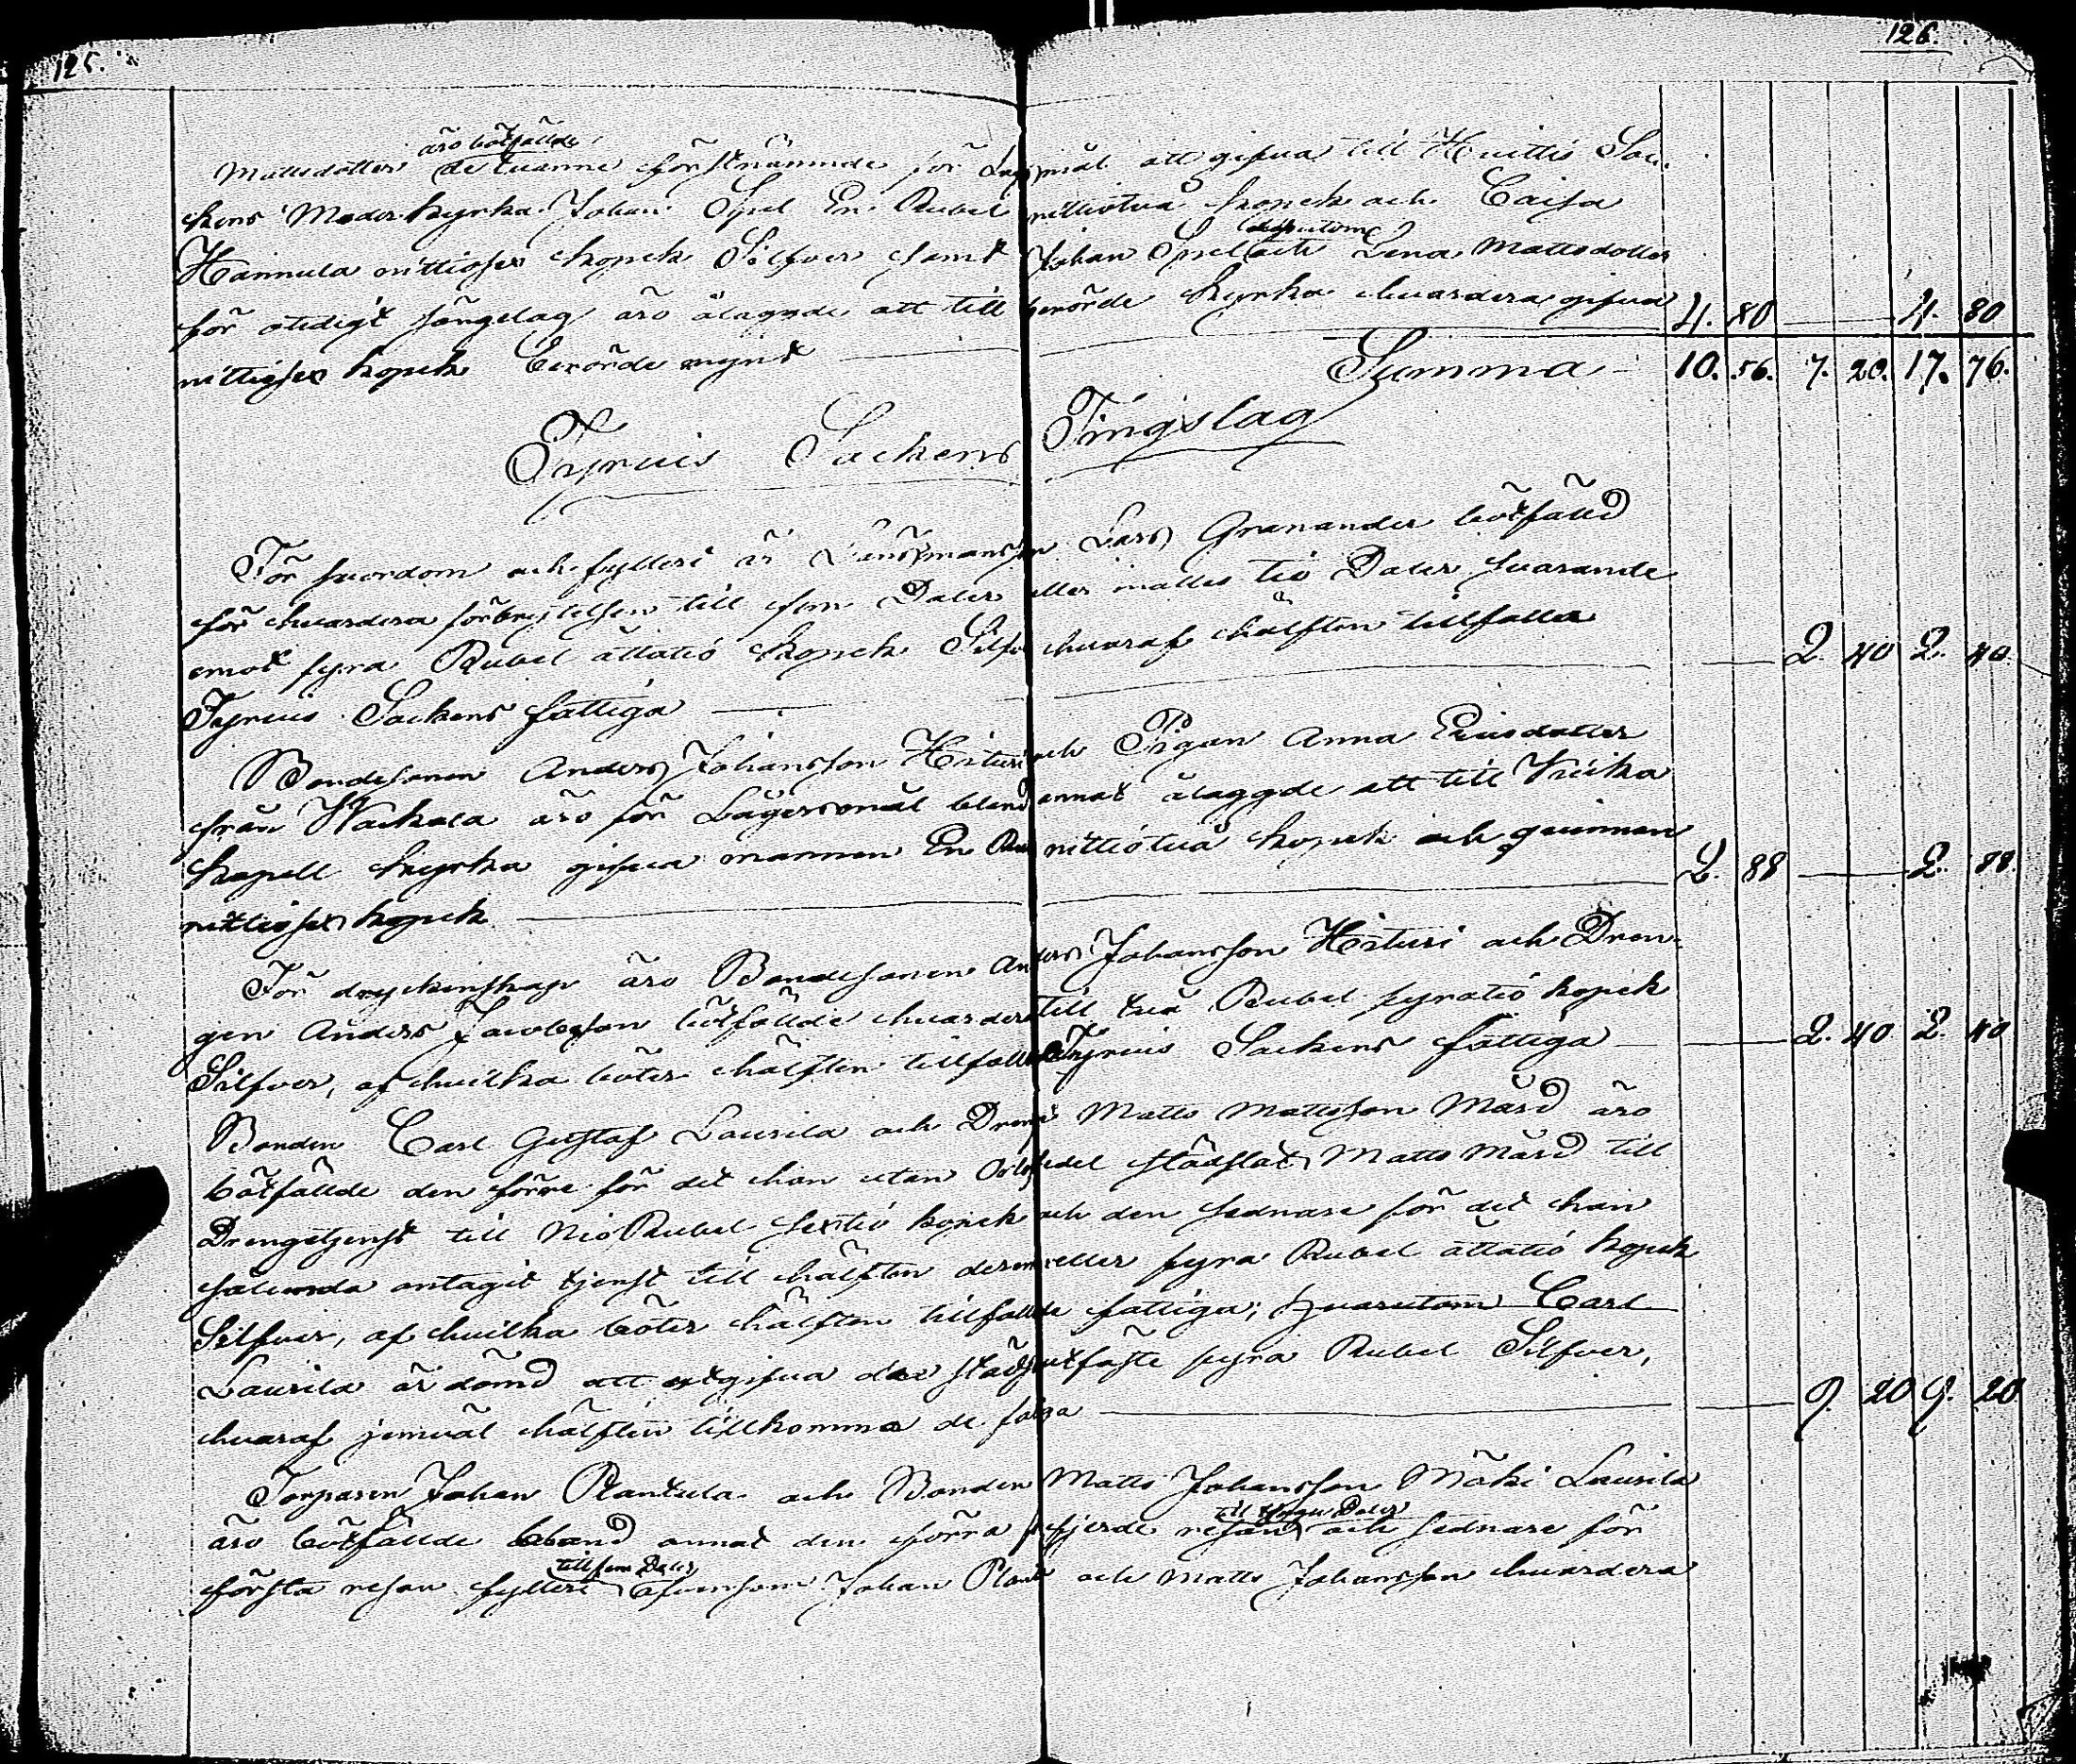 125.
126.
äro bötfällde
Mattsdotter de tvänne förstnämnde för Lägersmål att gifva till Huittis Soc-
kens Moderkyrka Johan Spel En Rubel nittiotvå kopek och Caisa
dessutom
Hannula nittiosex kopek Silfver samt Johan Spel och Lena Mattsdotter
för otidigt sängelag äro ålaggde att till berörde kyrka hvardera gifva
nittiosex kopek berörde mynt 4. 80 4. 80
Summa 10. 56. 7. 20. 17. 76.
Tyrvis Sockens Tingslag
För svordom och fylleri är Länsmanssn Lars Granander bötfälld
för hvardera förbrytelsen till fem Daler eller inalles tio Daler svarande
emot fyra Rubel åttatio kopek Silfver hvaraf hälften tillfaller
Tyrvis Sockens fattiga 2. 40 2. 40.
Bondesonen Anders Johansson Hituri och Pigan Anna Ericsdotter
från Wackala äro för Lägersmål bland annat ålaggde att till Kiika
kapell kyrka gifva mannen En Rubel nittiotvå kopek och qvinnan
nittiosex kopek 2. 88 2. 88.
För dryckenskap äro Bondesonen Anders Johansson Hituri och Dren-
gen Anders Jacobsson bötfällde hvardera till två Rubel fyratio kopek
Silfver, af hvilka böter hälften tillfaller Tyrvis Sockens fattiga 2. 40 2. 40
Bonden Carl Gustaf Laurila och Drengen Matts Mattsson Mård äro
bötfällde den förre för det han utan Orlofsedel städslat Matts Mård till
Drengetjenst till Nio Rubel sextio kopek och den sednare för det han
sålunda antagit tjenst till hälften deremot eller fyra Rubel åttatio kopek
Silfver, af hvilka böter hälften tillfaller de fattiga; hvarutom Carl
Laurila är dömd att utgifva den städja utfäste fyra Rubel Silfver,
hvaraf jemväl hälften tillkommer de fattiga 9. 20 9. 20
Torparen Johan Plantula och Bonden Matts Johansson Mäki Laurila
till tjugu Daler
äro bötfällde bland annat den förra för fjerde resan och sednare för
till fem Daler
första resan fylleri äfvensom Johan Plant och Matts Johansson hvardera